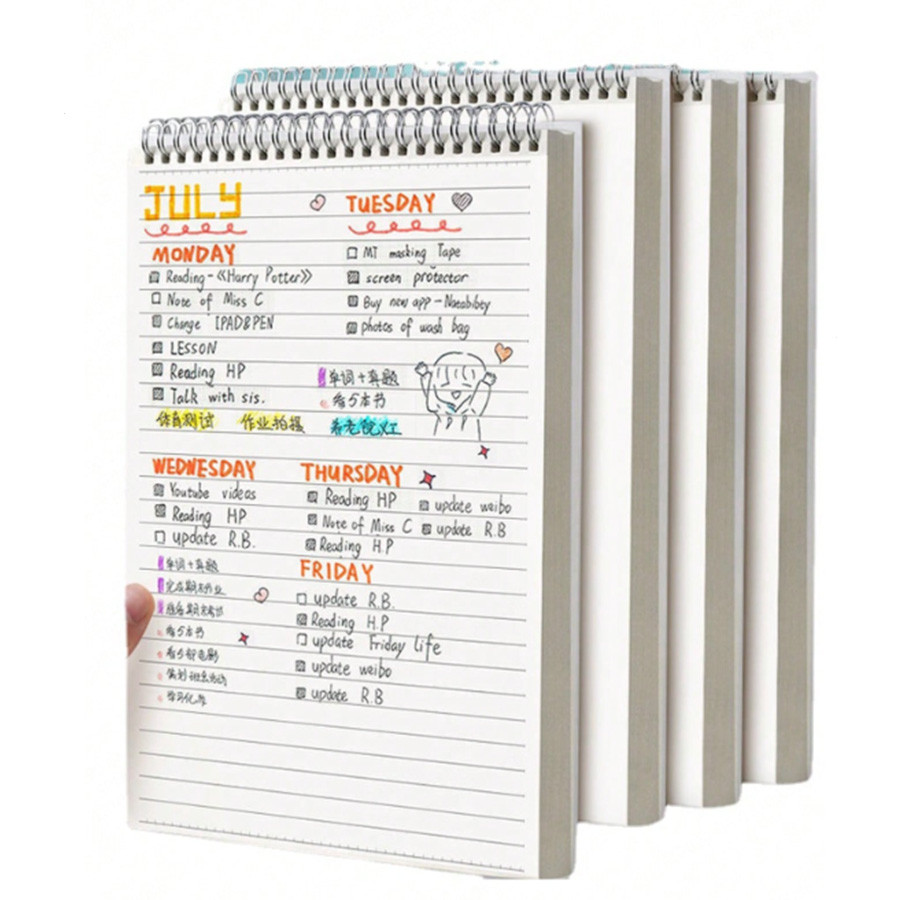 JULY
MONDAY
Reading-《Harry Potter》
Note of Miss C
Change IPAD&PEN
LESSON
Reading HP
Talk with sis.
体育测试 作业拍摄 养老院义工
TUESDAY
MT masking Tape
screen protector
Buy new app - Notability
photos of wash bag
单词+真题
看5本书
WEDNESDAY
Youtube videos
Reading HP
update R.B.
单词+真题
完成期末作业
准备期末考试
看5本书
看5部电影
策划班级活动
学习化妆
THURSDAY
Reading HP
Note of Miss C
Reading H.P
update weibo
update R.B
FRIDAY
update R.B.
Reading H.P
update Friday life
update weibo
update R.B